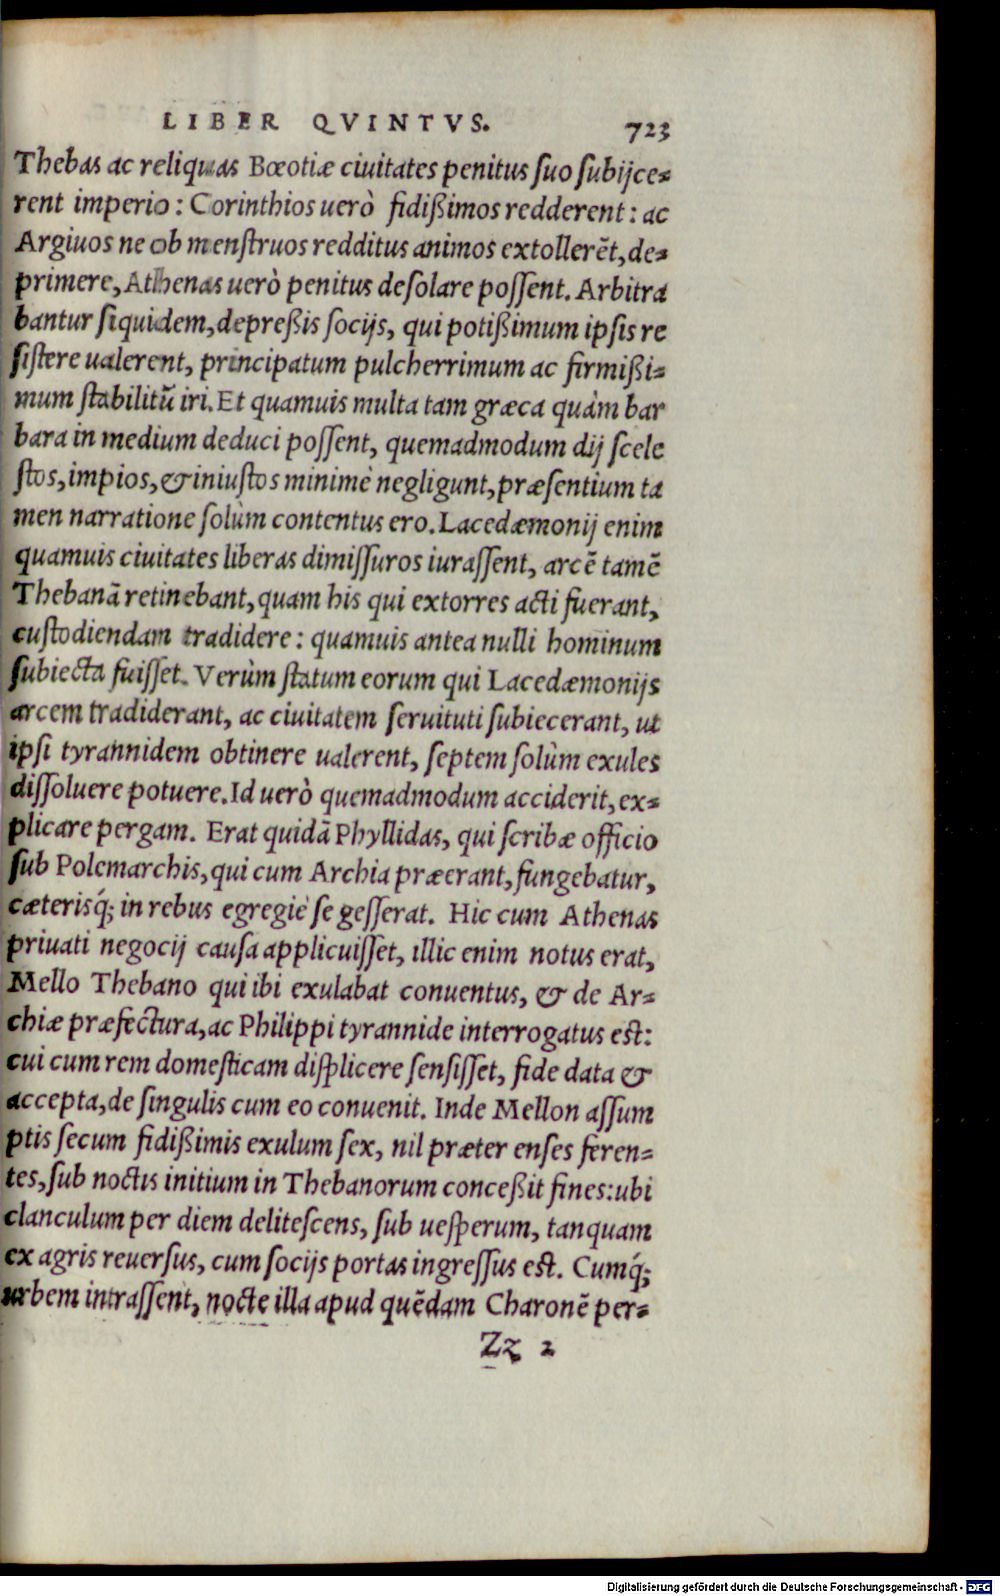 LIBER QVINTVS. 723
Thebas ac reliquas Bœotiæ ciuitates penitus ſuo ſubijce-
rent imperio: Corinthios uerò fidißimos redderent: ac
Argiuos ne ob menſtruos redditus animos extollerēt, de-
primere, Athenas uerò penitus deſolare poſſent. Arbitra
bantur ſiquidem, depreßis ſocijs, qui potißimum ipſis re
ſiſtere ualerent, principatum pulcherrimum ac firmißi-
mum ſtabilitū iri. Et quamuis multa tam græca quàm bar
bara in medium deduci poſſent, quemadmodum dij ſcele
ſtos, impios, & iniuſtos minimè negligunt, præſentium ta
men narratione ſolùm contentus ero. Lacedæmonij enim
quamuis ciuitates liberas dimiſſuros iuraſſent, arcē tamē
Thebanā retinebant, quam his qui extorres acti fuerant,
cuſtodiendam tradidere: quamuis antea nulli hominum
ſubiecta fuiſſet. Verùm ſtatum eorum qui Lacedæmonijs
arcem tradiderant, ac ciuitatem ſeruituti ſubiecerant, ut
ipſi tyrannidem obtinere ualerent, ſeptem ſolùm exules
diſſoluere potuere. Id uerò quemadmodum acciderit, ex-
plicare pergam. Erat quidā Phyllidas, qui ſcribæ officio
ſub Polemarchis, qui cum Archia præerant, fungebatur,
cæterisq́; in rebus egregiè ſe geſſerat. Hic cum Athenas
priuati negocij cauſa applicuiſſet, illic enim notus erat,
Mello Thebano qui ibi exulabat conuentus, & de Ar-
chiæ præfectura, ac Philippi tyrannide interrogatus eſt:
cui cum rem domeſticam diſplicere ſenſiſſet, fide data &
accepta, de ſingulis cum eo conuenit. Inde Mellon aſſum
ptis ſecum fidißimis exulum ſex, nil præter enſes feren-
tes, ſub noctis initium in Thebanorum conceßit fines: ubi
clanculum per diem deliteſcens, ſub ueſperum, tanquam
ex agris reuerſus, cum ſocijs portas ingreſſus eſt. Cumq́;
urbem intraſſent, nocte illa apud quēdam Charonē per-
Zz 2
Digitalisierung gefördert durch die Deutsche Forschungsgemeinschaft - DFG